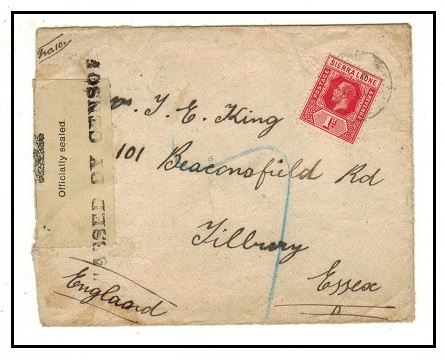 No.10.
Officially sealed.
PASSED BY CENSOR
SIERRA LEONE
POSTAGE
REVENUE
1D
T. E. King
101 Beaconsfield Rd
Tilbury
Essex
England